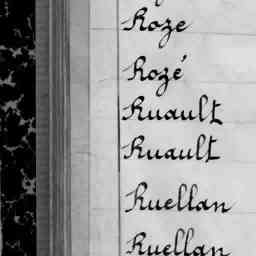 Roze
Rozé
Ruault
Ruault
Ruellan
Ruellan